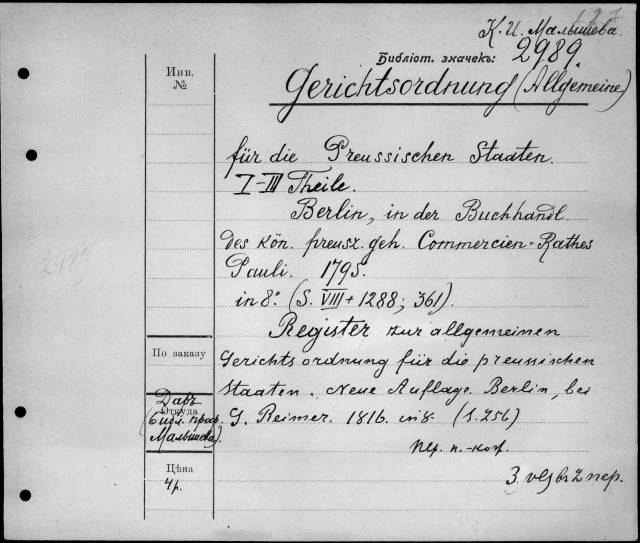 127
К. И. Малышева.
Библіот. значекъ: 2989.
Инв.
№
Gerichtsordnung (Allgemeine)
für die Preussischen Staaten.
I–III Theile.
Berlin, in der Buchhandl.
des kön. preusz. geh. Commercien-Rathes
2989
Pauli. 1795.
in 8° (S. VIII + 1288; 361).
Register zur allgemeinen
По заказу
Gerichtsordnung für die preussischen
Staaten. Neue Auflage. Berlin, bei
Даръ
Откуда
(библ. проф.
Малышева).
G. Reimer. 1816. in 8. (S. 256)
пер. к.-кор.
Цѣна
4 р.
3 vol. въ 2 пер.